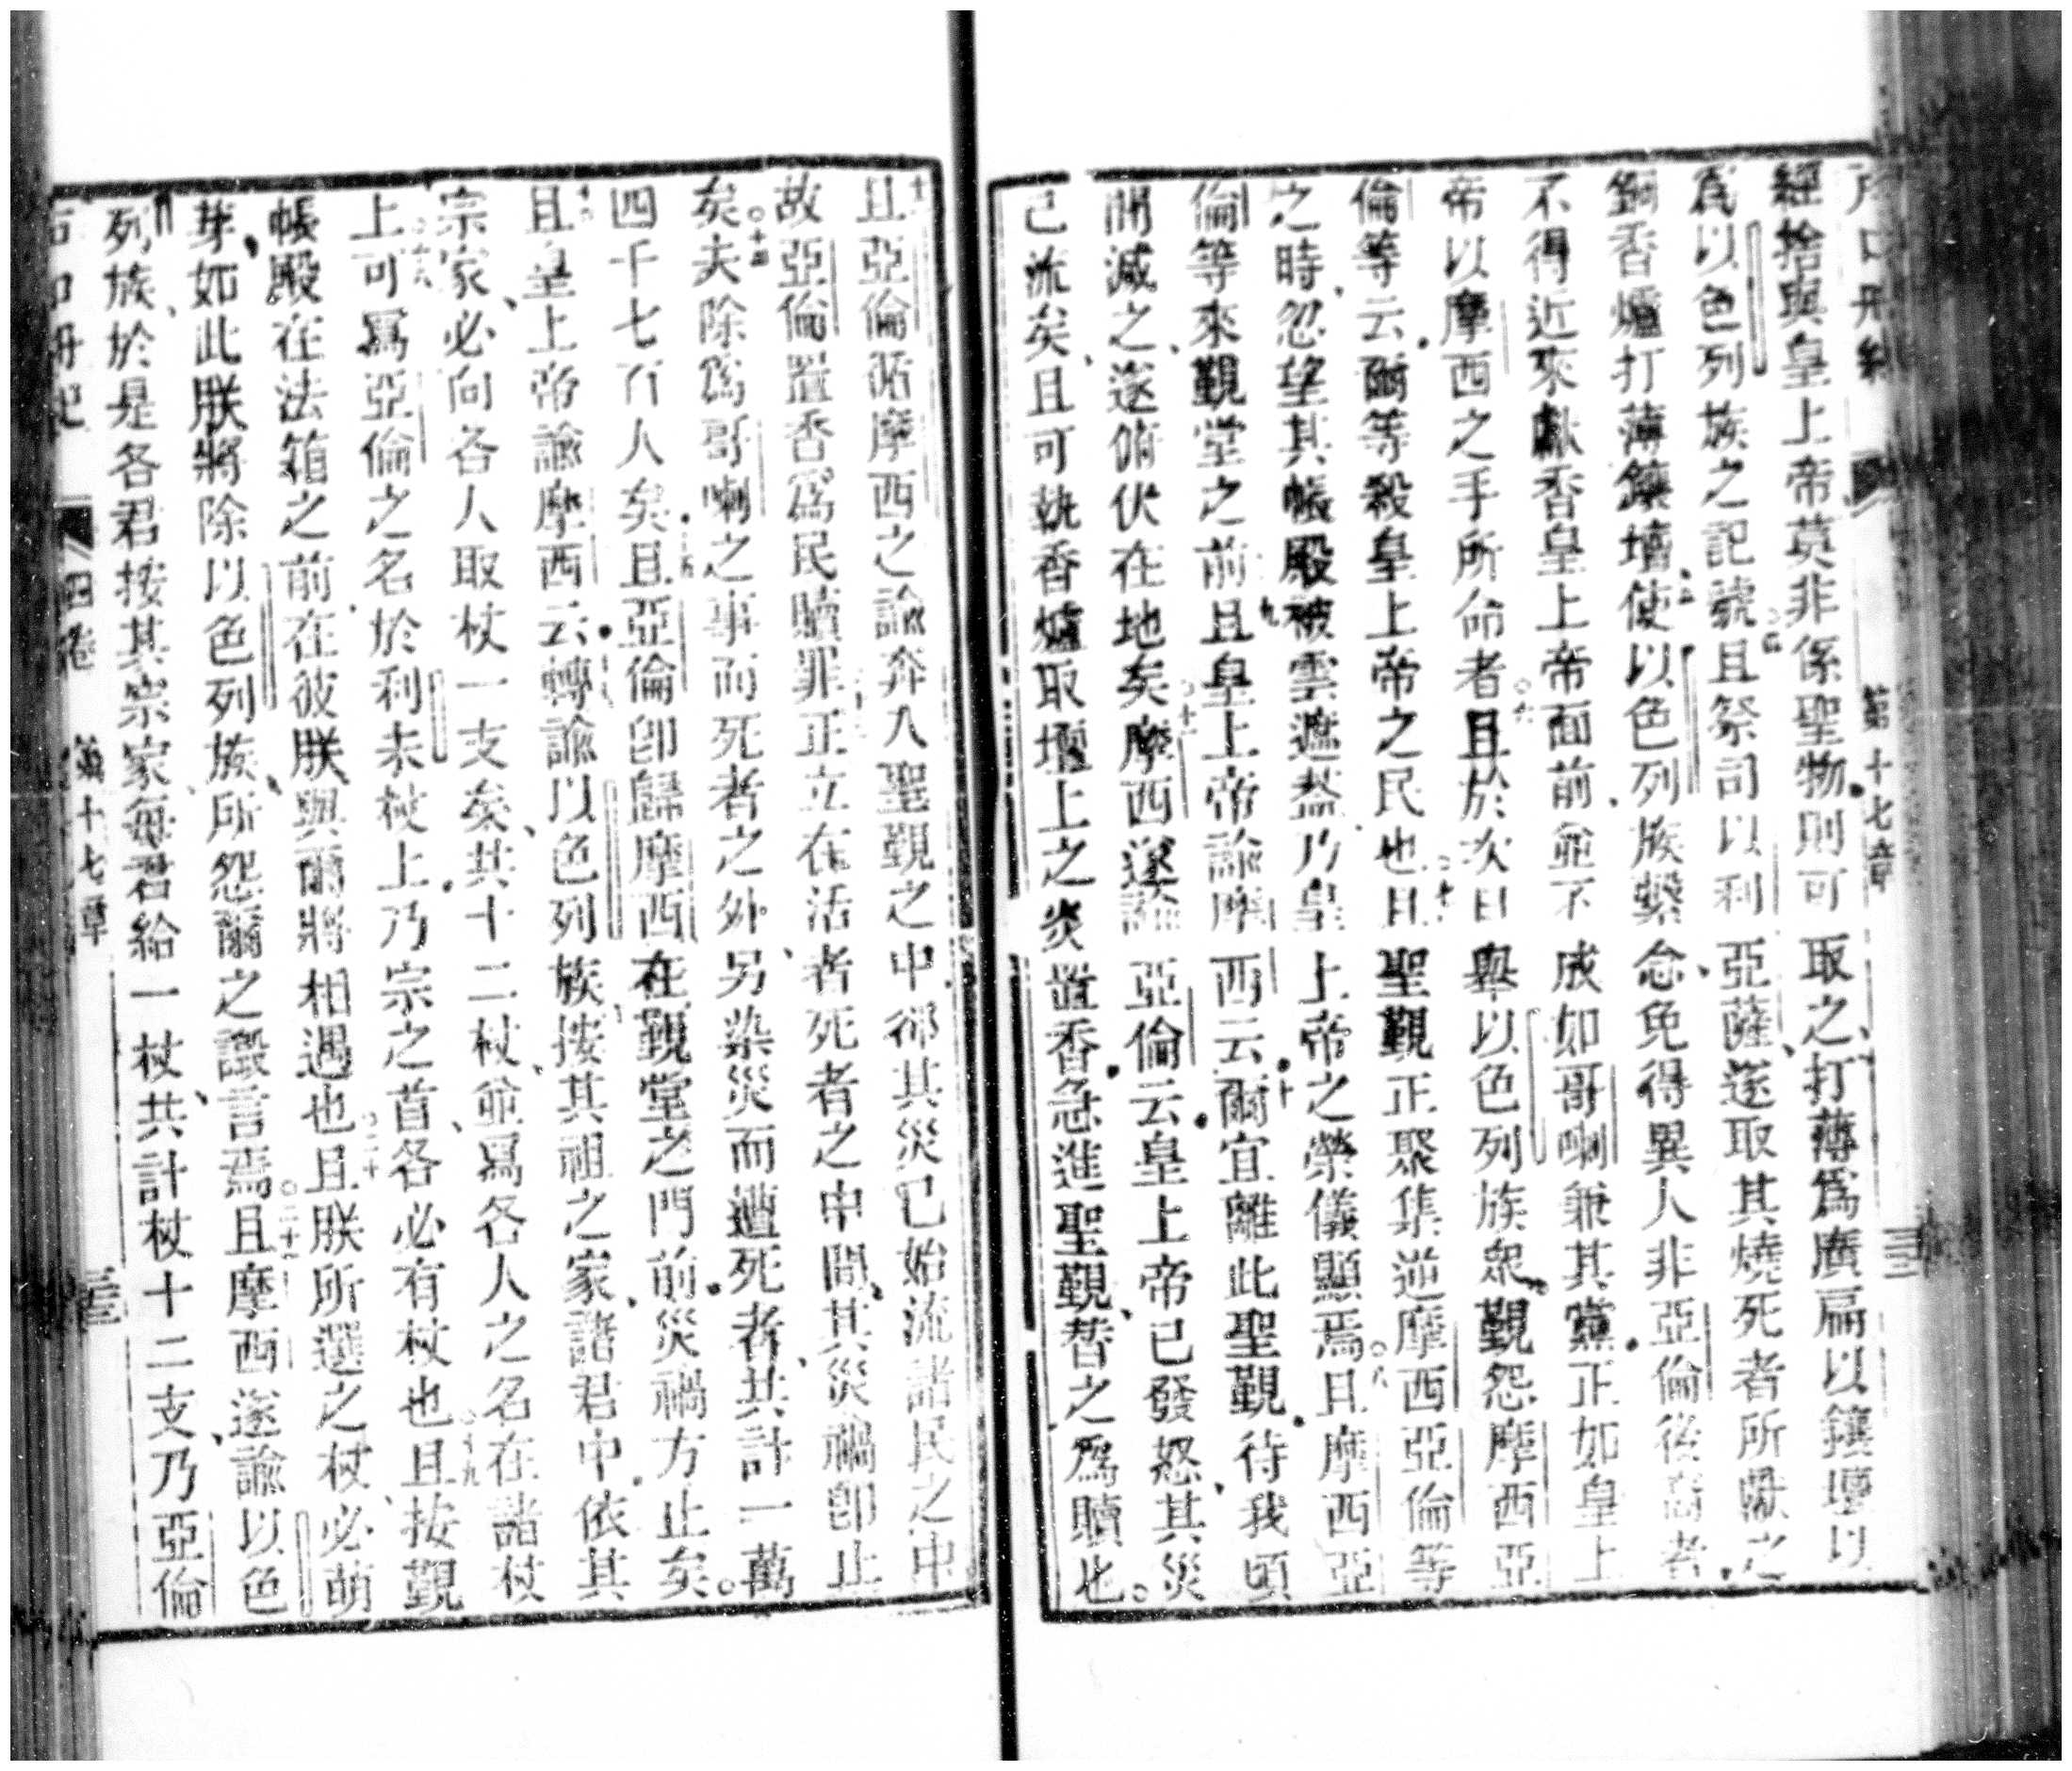 戶口冊紀 第十七章 三
經捨與皇上帝莫非係聖物則可取之打薄爲廣扁以鑲壇以
爲以色列族之記號且祭司以利亞薩遂取其燒死者所獻之
銅香爐打薄鑲壇使以色列族繫念免得異人非亞倫後裔者
不得近來獻香皇上帝面前並不成如哥喇兼其黨正如皇上
帝以摩西之手所命者且於次日舉以色列族衆覲怨摩西亞
倫等云爾等殺皇上帝之民也且聖覲正聚集逆摩西亞倫等
之時忽望其帳殿被雲遮葢乃皇上帝之榮儀顯焉且摩西亞
倫等來覲堂之前且皇上帝諭摩西云爾宜離此聖覲待我頃
間滅之遂俯伏在地矣摩西遂諭亞倫云皇上帝已發怒其災
已流矣且可執香爐取壇上之炎置香急進聖覲替之爲贖也
且亞倫循摩西之諭奔入聖覲之中卻其災已始流諸民之中
故亞倫置香爲民贖罪正立在活者死者之中間其災禍卽止
矣夫除爲哥喇之事而死者之外另染災而遭死者共計一萬
四千七百人矣且亞倫卽歸摩西在覲堂之門前災禍方止矣
且皇上帝諭摩西云轉諭以色列族按其祖之家諸君中依其
宗家必向各人取杖一支矣共十二杖並寫各人之名在諸杖
上可寫亞倫之名於利未杖上乃宗之首各必有杖也且按覲
帳殿在法箱之前在彼朕與爾將相遇也且朕所選之杖必萌
芽如此朕將除以色列族所怨爾之譭言焉且摩西遂諭以色
列族於是各君按其宗家每君給一杖共計杖十二支乃亞倫
戶口冊紀 四卷 第十七章 三